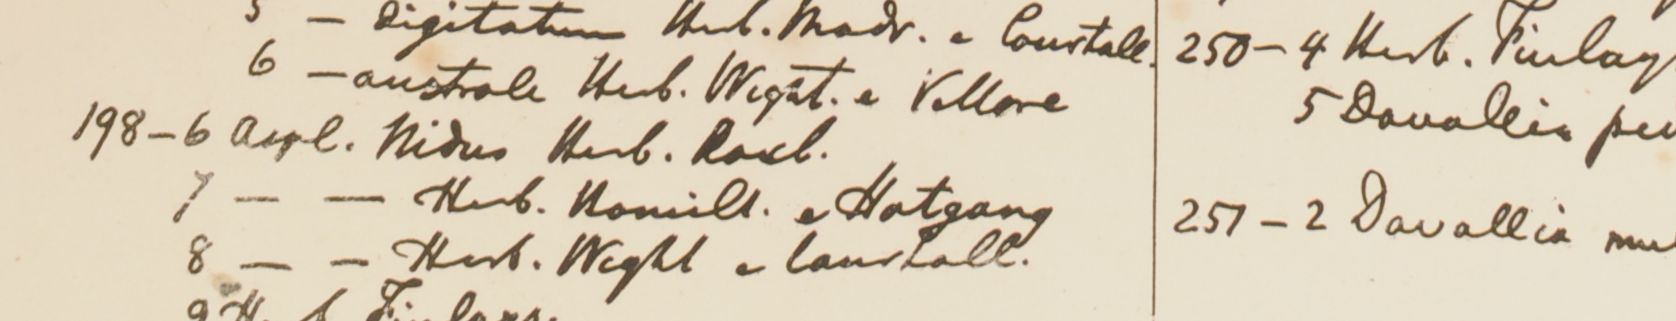 5 — digitatum Herb. Madr. e Courtall.
6 — australe Herb. Wight. e Vellore
198–6 Aspl. Nidus Herb. Roxb.
7 — — Herb. Hamilt. e Hatgang
8 — — Herb. Wight e Courtall.
9 Herb. Finlays.
250–4 Herb. Finlay
5 Davallia
251–2 Davallia